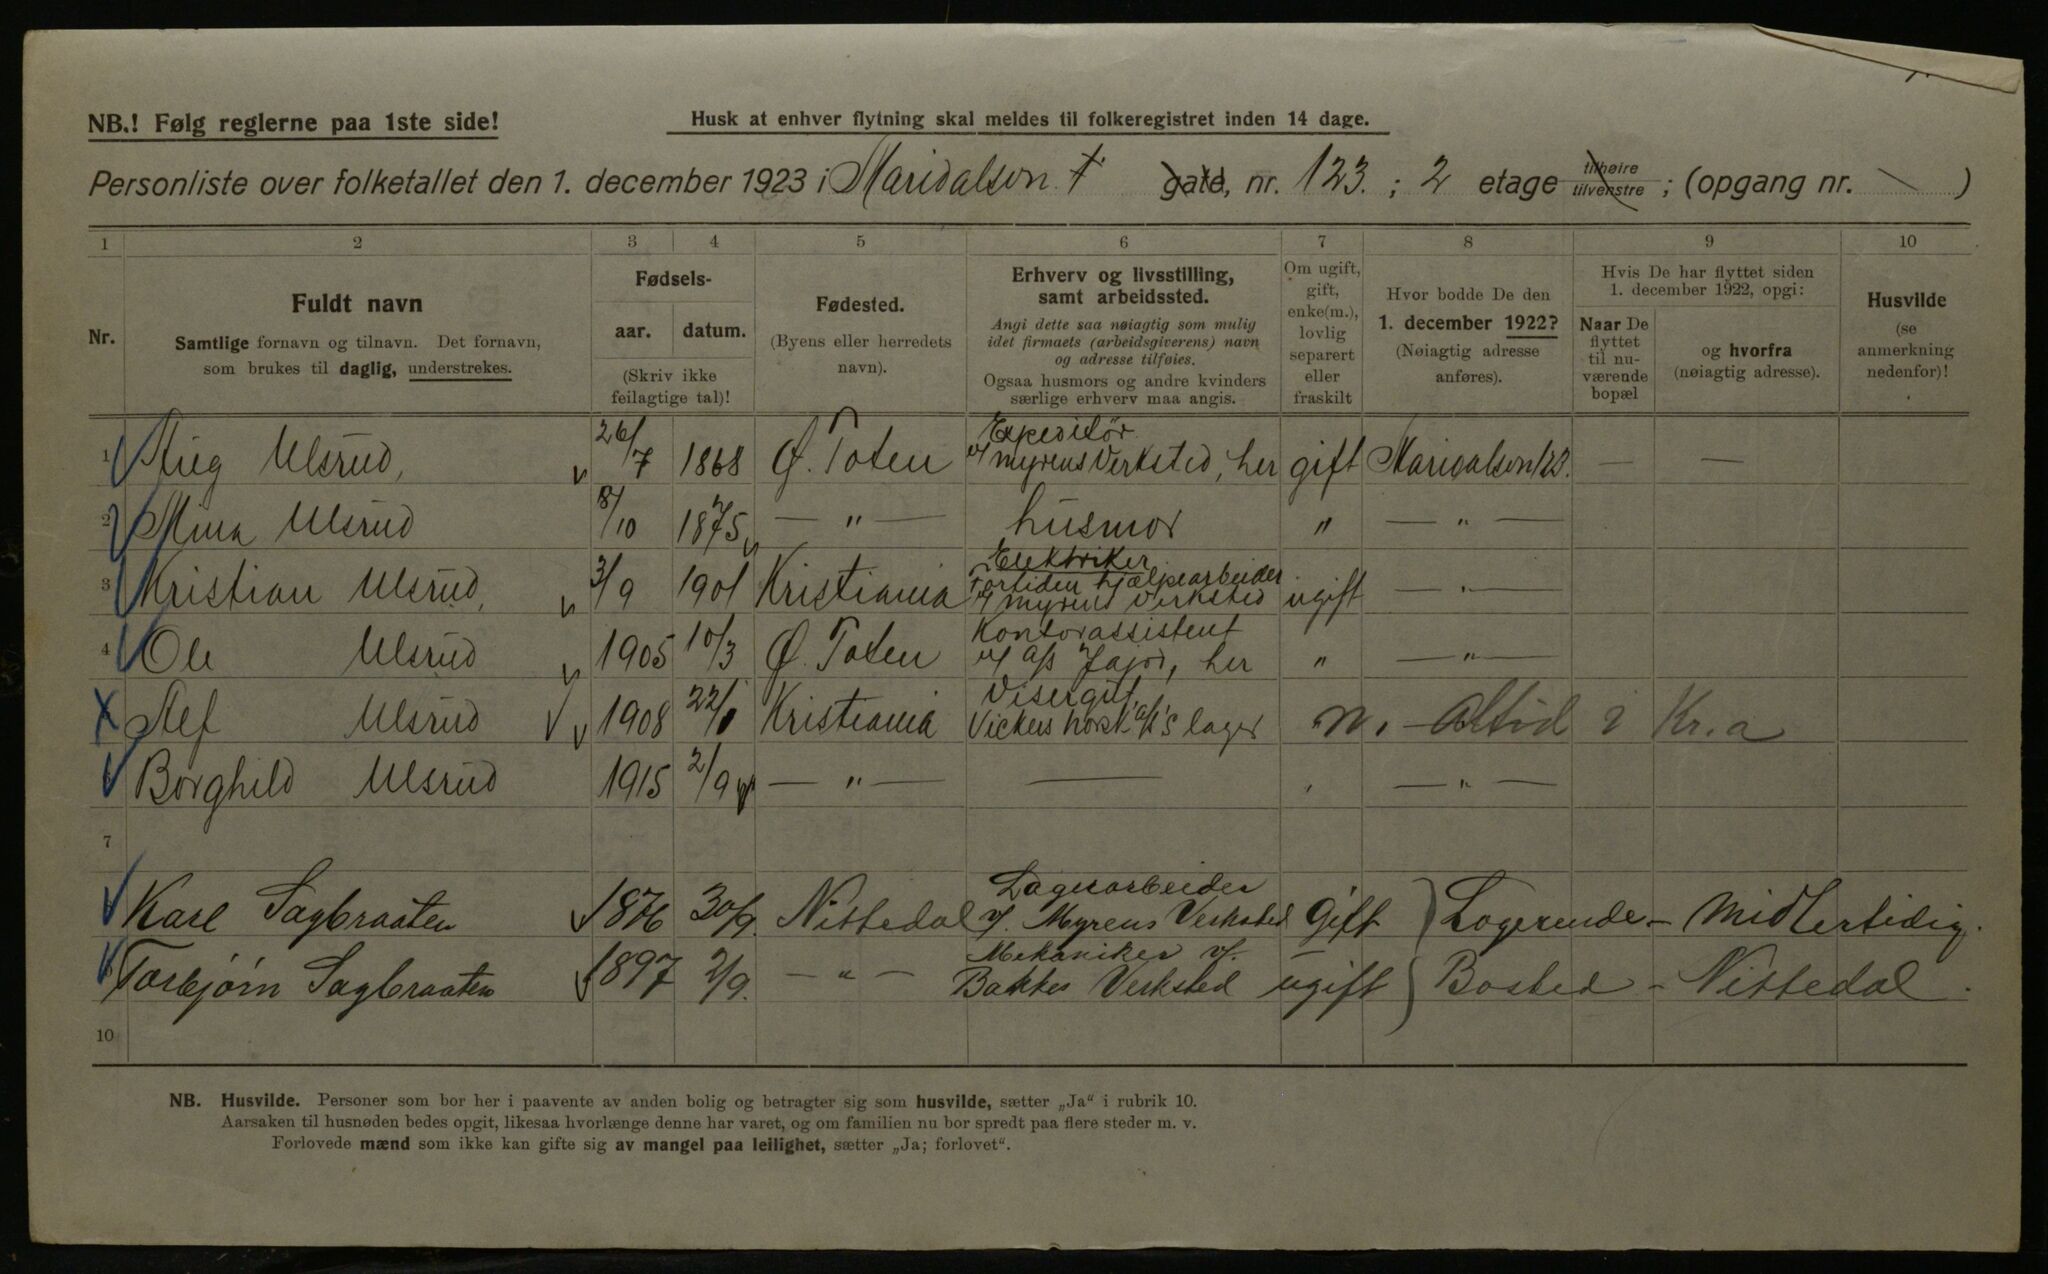 NB.! Følg reglerne paa 1ste side!
Husk at enhver flytning skal meldes til folkeregistret inden 14 dage.
Personliste over folketallet den 1. december 1923 i Maridalsvn. gate, nr. 123. ; 2 etage tilhøire tilvenstre ; (opgang nr. )
1 2 3 4 5 6 7 8 9 10
Nr.
Fuldt navn
Samtlige fornavn og tilnavn. Det fornavn,
som brukes til daglig, understrekes.
Fødsels-
aar. datum.
(Skriv ikke
feilagtige tal)!
Fødested.
(Byens eller herredets
navn).
Erhverv og livsstilling,
samt arbeidssted.
Angi dette saa nøiagtig som mulig
idet firmaets (arbeidsgiverens) navn
og adresse tilføies.
Ogsaa husmors og andre kvinders
særlige erhverv maa angis.
Om ugift,
gift,
enke(m.),
lovlig
separert
eller
fraskilt
Hvor bodde De den
1. december 1922?
(Nøiagtig adresse
anføres).
Hvis De har flyttet siden
1. december 1922, opgi:
Naar De
flyttet
til nu-
værende
bopæl
og hvorfra
(nøiagtig adresse).
Husvilde
(se
anmerkning
nedenfor)!
Expeditør
1 Ulsrud, 26/7 1868 Ø. Toten v/ Myrens Verksted, her gift Maridalsvn 123. — —
2 Mina Ulsrud 8/10 1875 — " — husmor " — " —
Elektriker
Fortiden hjælpearbeider
3 Kristian Ulsrud, 3/9 1901 Kristiania v/ Myrens Verksted ugift — " —
Kontorassistent
4 Ole Ulsrud 1905 10/3 Ø. Toten v/ A/s Jajod, her " — " —
Visergut
Ulsrud 1908 22/1 Kristiania Vickers norsk A/s's lager n. — Altid i Kr.a
Borghild Ulsrud 1915 2/9 — " — — — " —
7
Lagerarbeider
Karl Sagbraaten 1876 30/9. Nittedal v/. Myrens Verksted Gift Logerende — Midlertidig.
Mekaniker v/.
Torbjørn Sagbraaten 1897 2/9. — " — Bakkes Verksted ugift Bosted — Nittedal.
10
NB. Husvilde. Personer som bor her i paavente av anden bolig og betragter sig som husvilde, sætter „Ja" i rubrik 10.
Aarsaken til husnøden bedes opgit, likesaa hvorlænge denne har varet, og om familien nu bor spredt paa flere steder m. v.
Forlovede mænd som ikke kan gifte sig av mangel paa leilighet, sætter „Ja; forlovet".